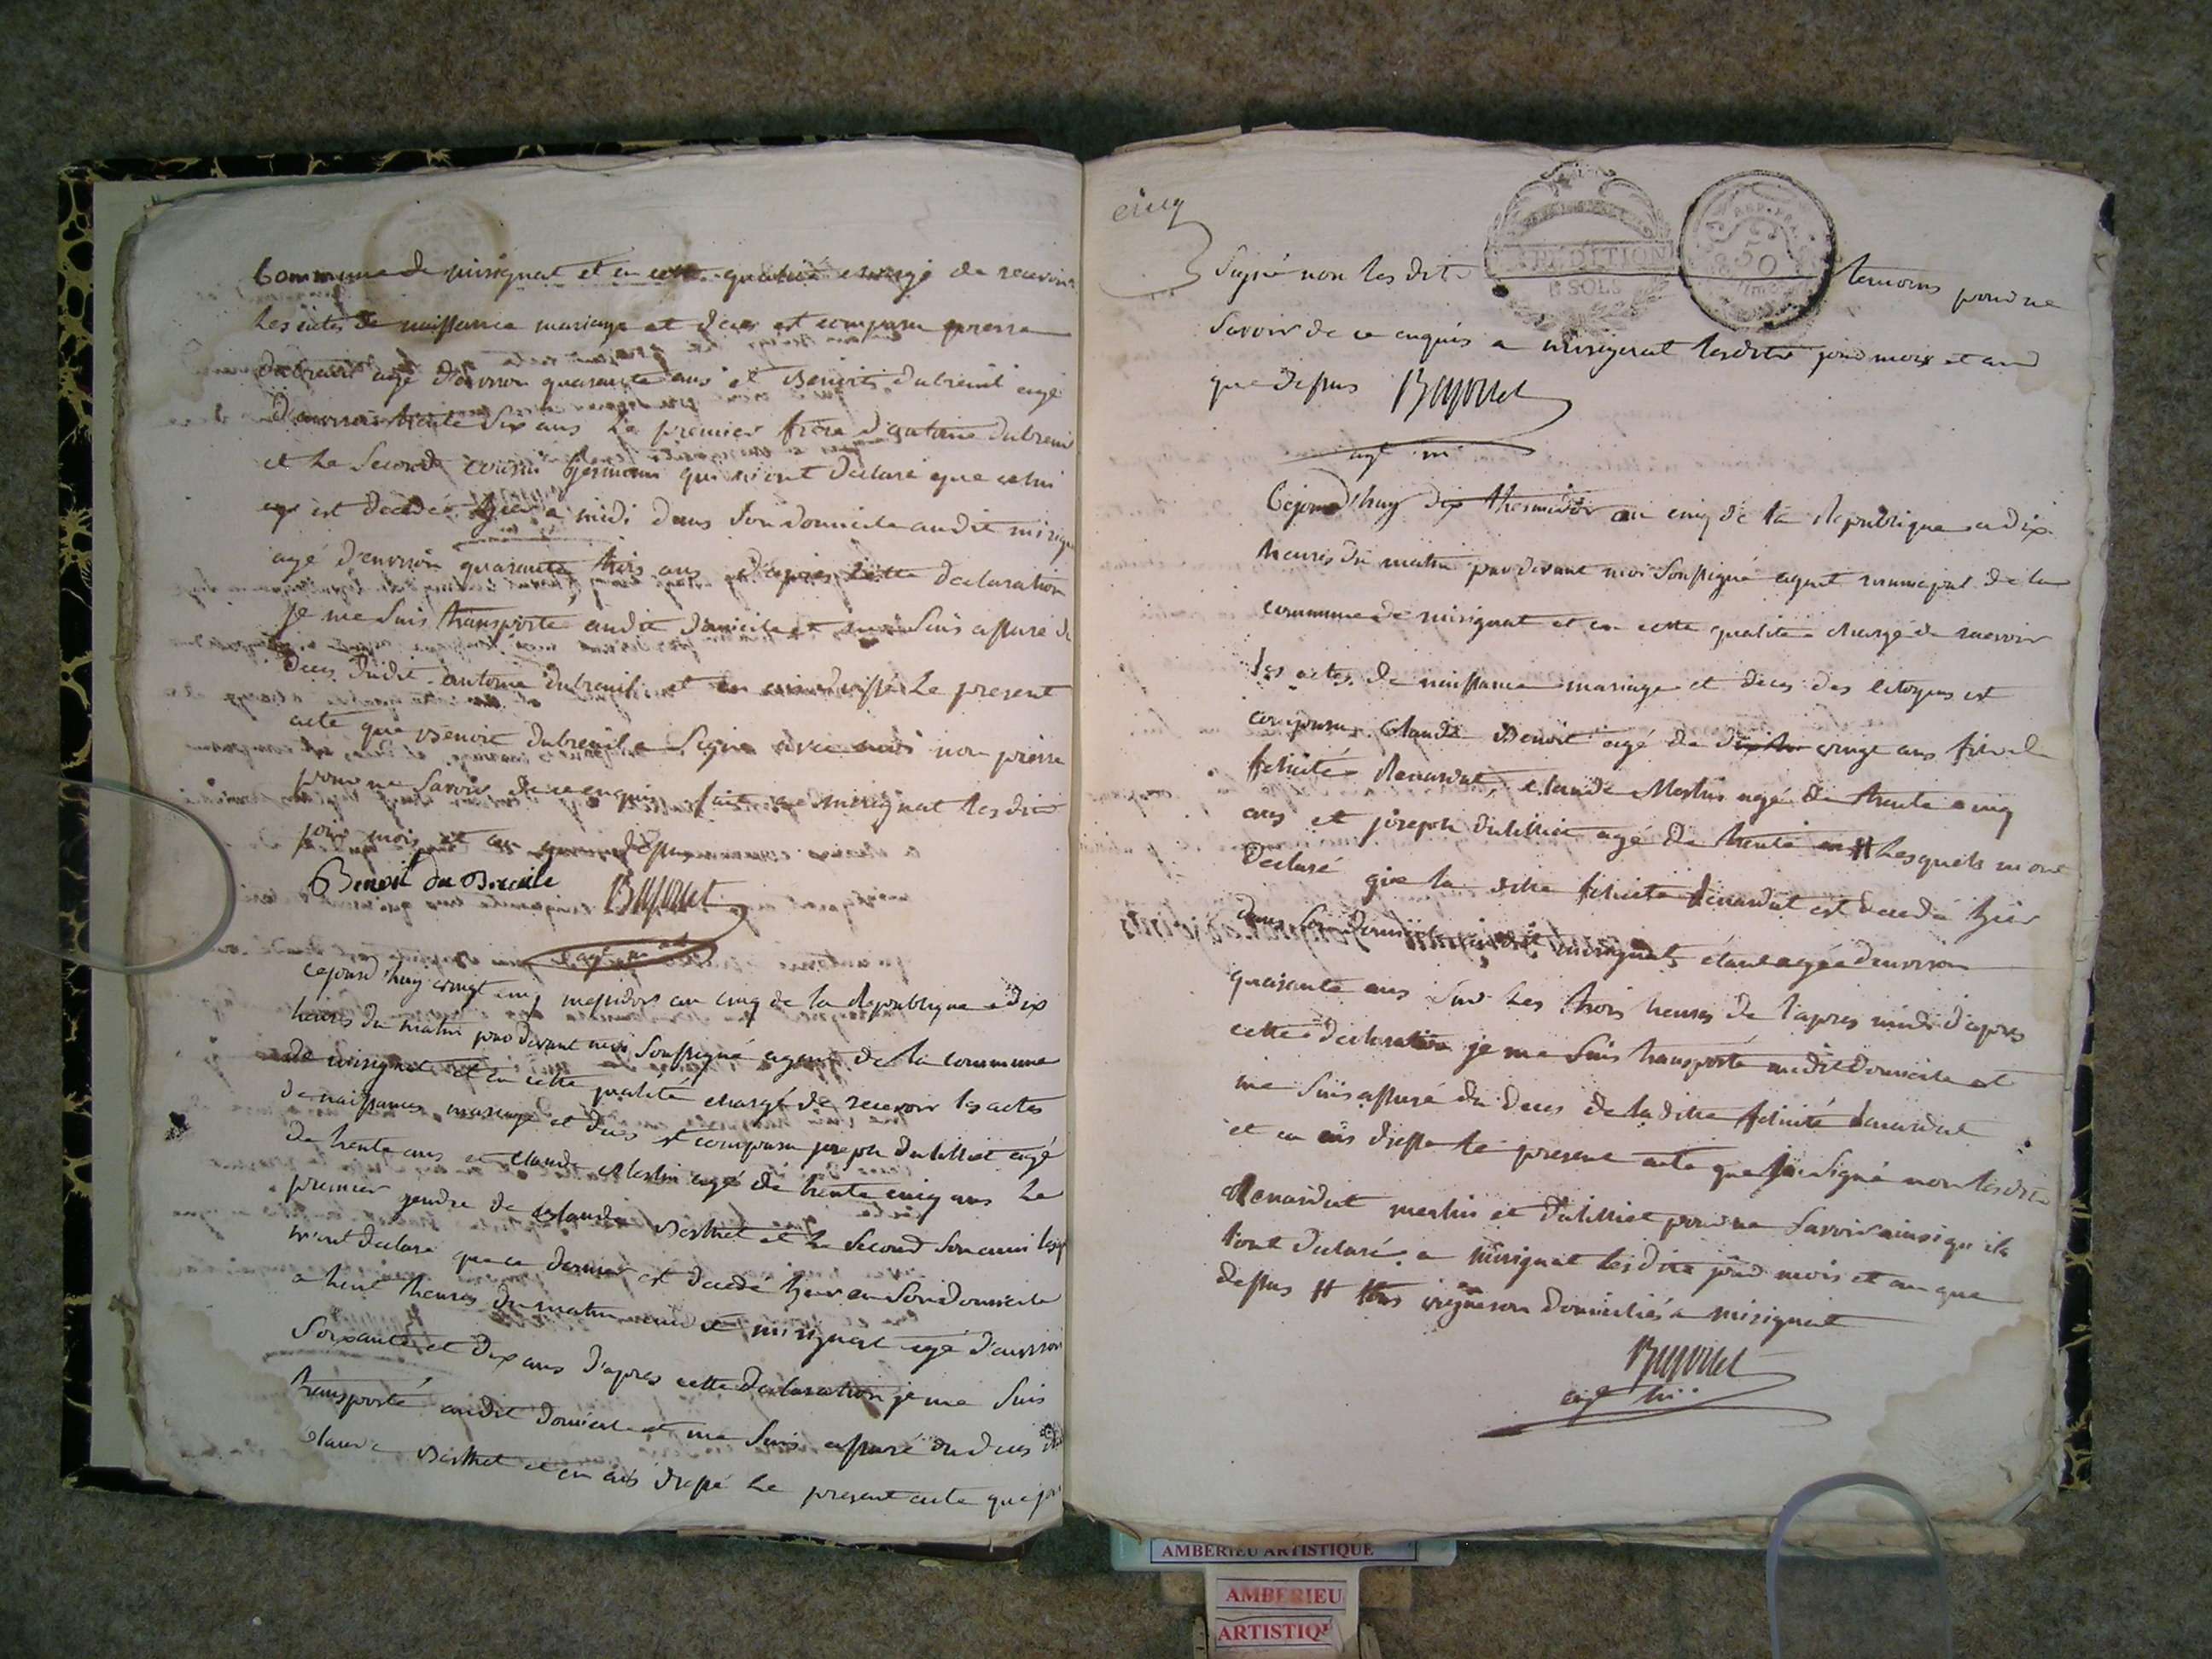 Commune de misignat et en cette qualité chargé de recevoir
les actes de naissance mariage et deces est comparu pierre
dubreuil agé d'environ quarante ans et Benoit dubreuil agé
d'environ trente six ans le premier frere d'antoine dubreuil
et le second cousin germain qui m'ont declaré que celui
cy est decedé hyer a midi dans son domicile audit misignat
agé d'environ quarante trois ans d'apres cette declaration
je me suis transporté audit domicile et me suis assuré du
deces dudit antoine dubreuil et en ais dressé le present
acte que Benoit dubreuil a signé avec moi non pierre
pour ne savoir de ce enquis fait a misignat lesdits
jour mois et an que dessus
Benoit du Breuile
agt m
cejourd'huy vingt cinq messidor an cinq de la republique a dix
heures du matin par devant moi soussigné agent de la commune
de misignat et en cette qualité chargé de recevoir les actes
de naissances mariage et deces est comparu joseph dutilliet agé
de trente ans et claude Merlin agé de trente cinq ans le
premier gendre de claude Berthet et le second son ami
m'ont declaré que ce dernier est decedé hyer en son domicile
a huit heures du matin audit misignat agé d'environ
soixante et dix ans d'apres cette declaration je me suis
transporté audit domicile et me suis assuré du deces de
claude Berthet et en ais dressé le present acte que j'ai
cinq
signé non lesdits temoins pour ne
EXPEDITION
SOLS
REP. FRA.
50
savoir de ce enquis a misignat lesdits jour mois et an
que dessus
agt m
Cejourd'huy dix thermidor an cinq de la republique a dix
heures du matin par devant moi soussigné agent municipal de la
commune de misignat et en cette qualité chargé de recevoir
les actes de naissance mariage et deces des citoyens est
comparu claude Benoit agé de vingt ans fils de
felicité Renardat, claude Merlin agé de trente cinq
ans et joseph dutilliet agé de trente ans # lesquels m'ont
declaré que la ditte felicité Renardat est decedé hier
dans son domicile audit misignat, étant agée d'environ
quarante ans sur les trois heures de l'apres midi d'apres
cette declaration je me suis transporté audit domicile et
me suis assuré du deces de la ditte felicité Renardat
et en ais dressé le present acte que j'ai signé non lesdits
Renardat merlin et dutilliet pour ne savoir ainsi qu'ils
l'ont declaré a misignat lesdits jour mois et an que
dessus # tous vigneron domiciliés a misignat
agt m
AMBERIEU ARTISTIQUE
AMBERIEU
ARTISTIQU